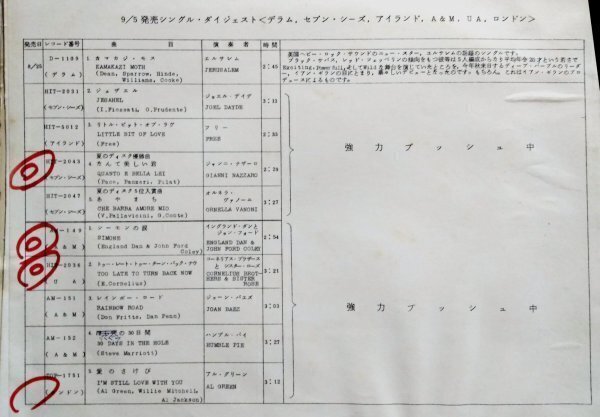 9/5 発売シングル・ダイジェスト<デラム, セブン・シーズ, アイランド, A&M, UA, ロンドン>
発売日 レコード番号 曲 目 演 奏 者 時 間
9/25 D-1109 (デラム) 1. カマカジ・モス KAMAKAZI MOTH (Dean, Sparrow, Hinde, Williams, Cooke) エルサレム JERUSALEM 2:45
英国ヘビー・ロック・サウンドのニュー・スター, エルサレムの話題のシングルです。
ブラック・サバス, レッド・ツェッペリンの傾向をもつ彼等は5人編成からなり平均年令20才という若さで
Exciting, Powerfull, そしてWildな舞台を演じていたところを, 今年秋来日するディープ・パープルのリーダー, イアン・ギランの目にとまり, 華々しいデビューとなったのです。もちろん, これはイアン・ギランのプロデュースによるものです。
HIT-2031 (セブン・シーズ) 2. ジェザエル JESAHEL (I.Fossati, O.Prudente) ジョエル・デイデ JOEL DAYDE 3:13
HIT-5012 (アイランド) 3. リトル・ビット・オブ・ラヴ LITTLE BIT OF LOVE (Free) フリー FREE 2:33
強 力 プ ッ シ ュ 中
HIT-2043 (セブン・シーズ) 夏のディスク優勝曲 4. なんて美しい君 QUANTO E BELLA LEI (Pace, Panzeri, Pilat) ジャンニ・ナザーロ GIANNI NAZZARO 2:29
HIT-2047 (セブン・シーズ) 夏のディスク5位入賞曲 5. あ や ま ち CHE BARBA AMORE MIO (V.Pallavicini, G.Conte) オルネラ・ヴァノーニ ORNELLA VANONI 3:27
AM-149 (A & M) 1. シーモンの涙 SIMONE (England Dan & John Ford Coley) イングランド・ダンとジョン・フォード ENGLAND DAN & JOHN FORD COLEY 2:54
HIT-2036 (U A) 2. トゥー・レート・トゥ・ターン・バック・ナウ TOO LATE TO TURN BACK NOW (E.Cornelius) コーネリアス・ブラザーズとシスター・ローズ CORNELIUS BROTHERS & SISTER ROSE 3:21
AM-151 (A & M) 3. レインボー・ロード RAINBOW ROAD (Don Fritts, Dan Penn) ジョーン・バエズ JOAN BAEZ 3:03
強 力 プ ッ シ ュ 中
AM-152 (A & M) 4. の30日間 30 DAYS IN THE HOLE (Steve Marriott) ハンブル・パイ HUMBLE PIE 3:27
TOP-1751 (ロンドン) 5. 愛のさけび I'M STILL LOVE WITH YOU (Al Green, Willie Mitchell, Al Jackson) アル・グリーン AL GREEN 3:12